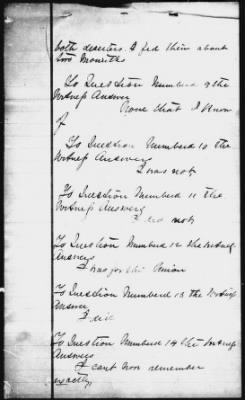 both deserters. I fed them about
two Months
To Question Numberd 9 the
Witness Answer
None that I know
of
To Question Numberd 10 the
Witness Answers
I was not
To Question Numberd 11 the
Witness Answers
I did not
To Question Numberd 12 the Witness
Answers
I was for the Union
To Question Numberd 13 the Witness
Answer
I did
To Question Numberd 14 the Witness
Answers
I cant now remember
exactly